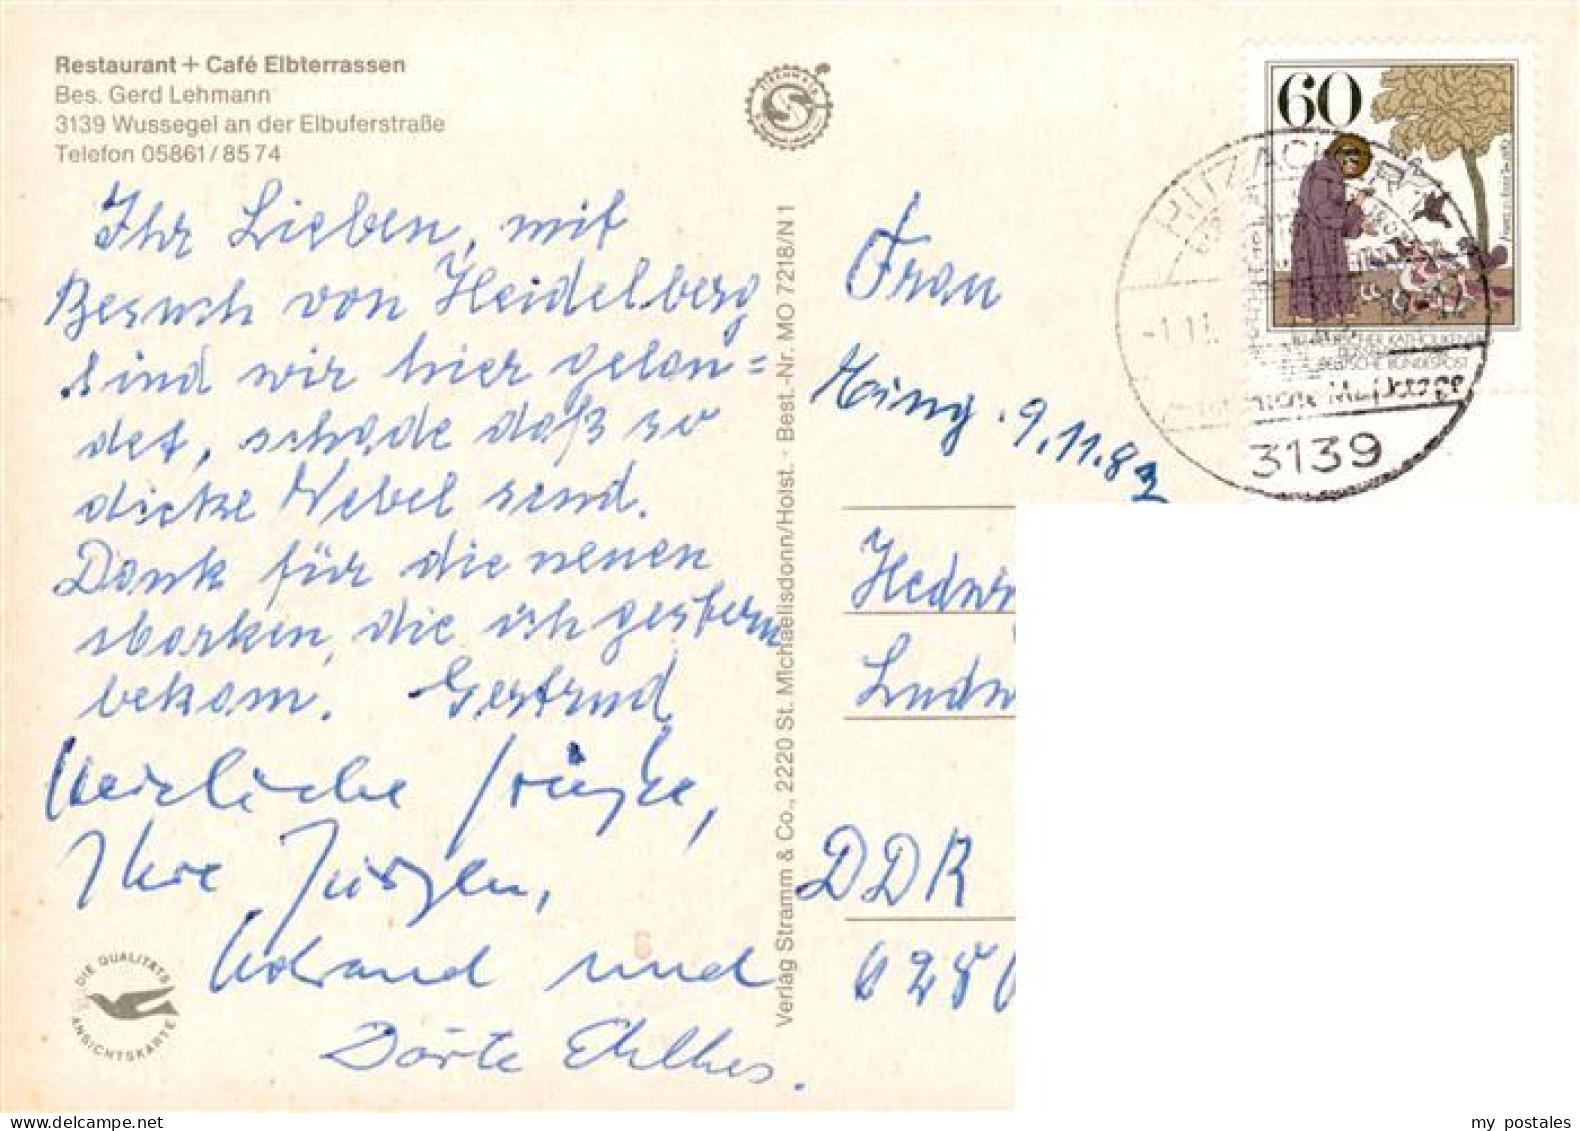 Restaurant + Café Elbterrassen
Bes. Gerd Lehmann
3139 Wussegel an der Elbuferstraße
Telefon 05861/8574
Ihr Lieben, mit
Besuch von Heidelberg
sind wir hier gelan=
det, schade daß so
dicke Nebel sind.
Dank für die neuen
Marken, die ich gestern
bekam. Gertrud
Herzliche Grüße,
Ihre Jürgen,
und
Dörte Ehlbes.
DIE QUALITÄTS
ANSICHTSKARTE
Verlag Stramm & Co., 2220 St. Michaelisdonn/Holst. - Best.-Nr. MO 7218/N1
60
HITZACKER
-1.11.
3139
DEUTSCHE BUNDESPOST
Frau
9.11.82
Hedwi
Ludw
DDR
my postales